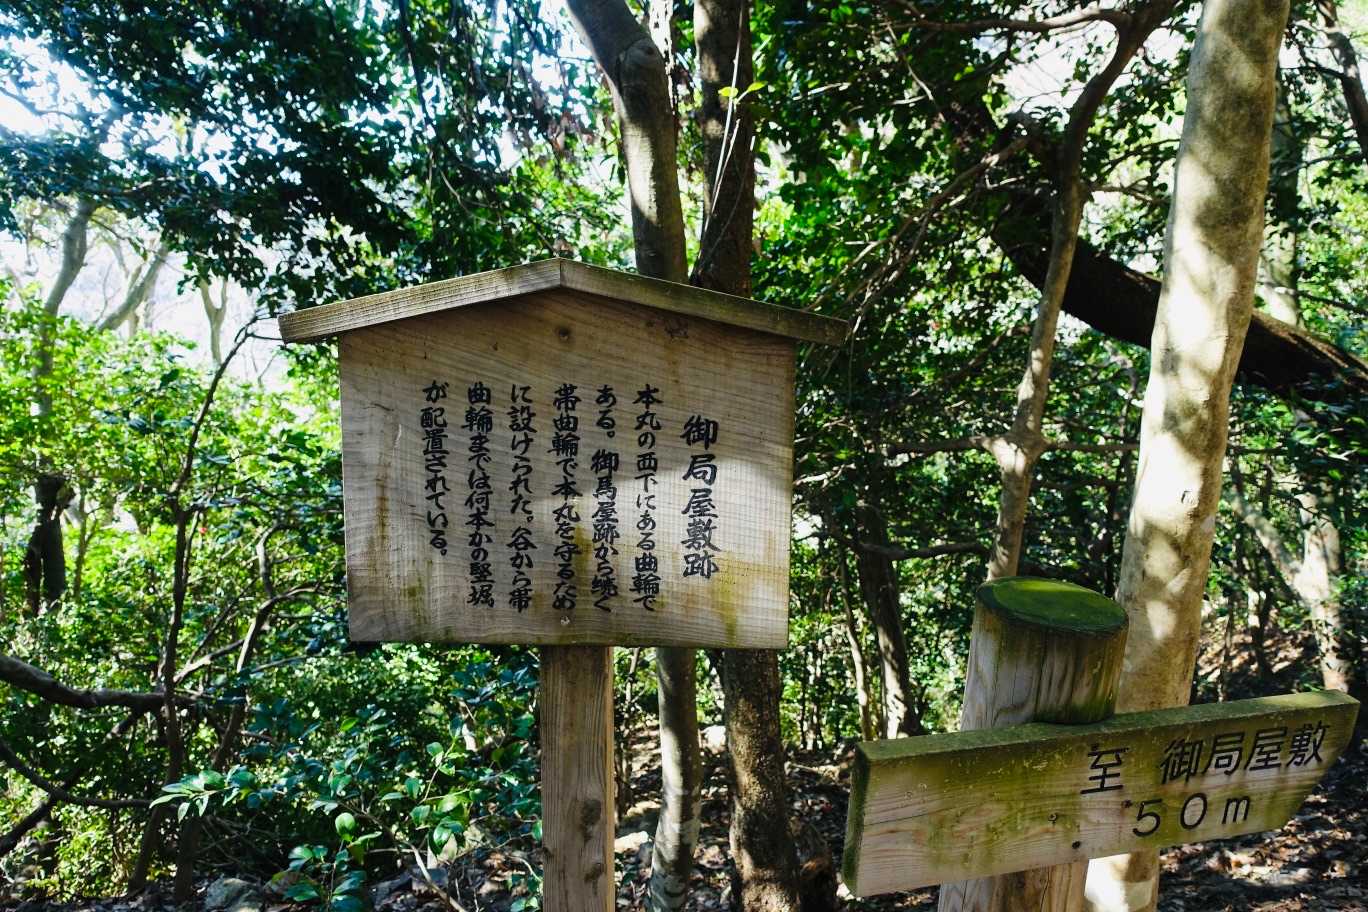 御局屋敷跡
本丸の西下にある曲輪で
ある。御馬屋跡から続く
帯曲輪で本丸を守るため
に設けられた。谷から帯
曲輪までは何本かの竪堀
が配置されている。
至 御局屋敷
50m